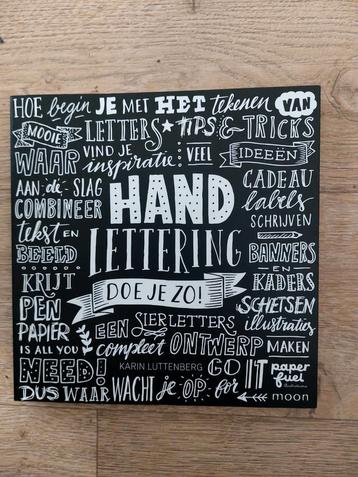 HOE begin JE MET HET tekenen VAN
MOOIE LETTERS TIPS & TRICKS
WAAR VIND JE inspiratie VEEL IDEEËN
AAN de SLAG HAND CADEAU labels
COMBINEER LETTERING SCHRIJVEN
tekst EN BEELD BANNERS EN KADERS
KRIJT DOE JE ZO! SCHETSEN
PEN PAPIER EEN SIERLETTERS illustraties
IS ALL YOU compleet ONTWERP MAKEN
NEED! KARIN LUTTENBERG GO IT paper fuel
DUS WAAR WACHT je OP for moon